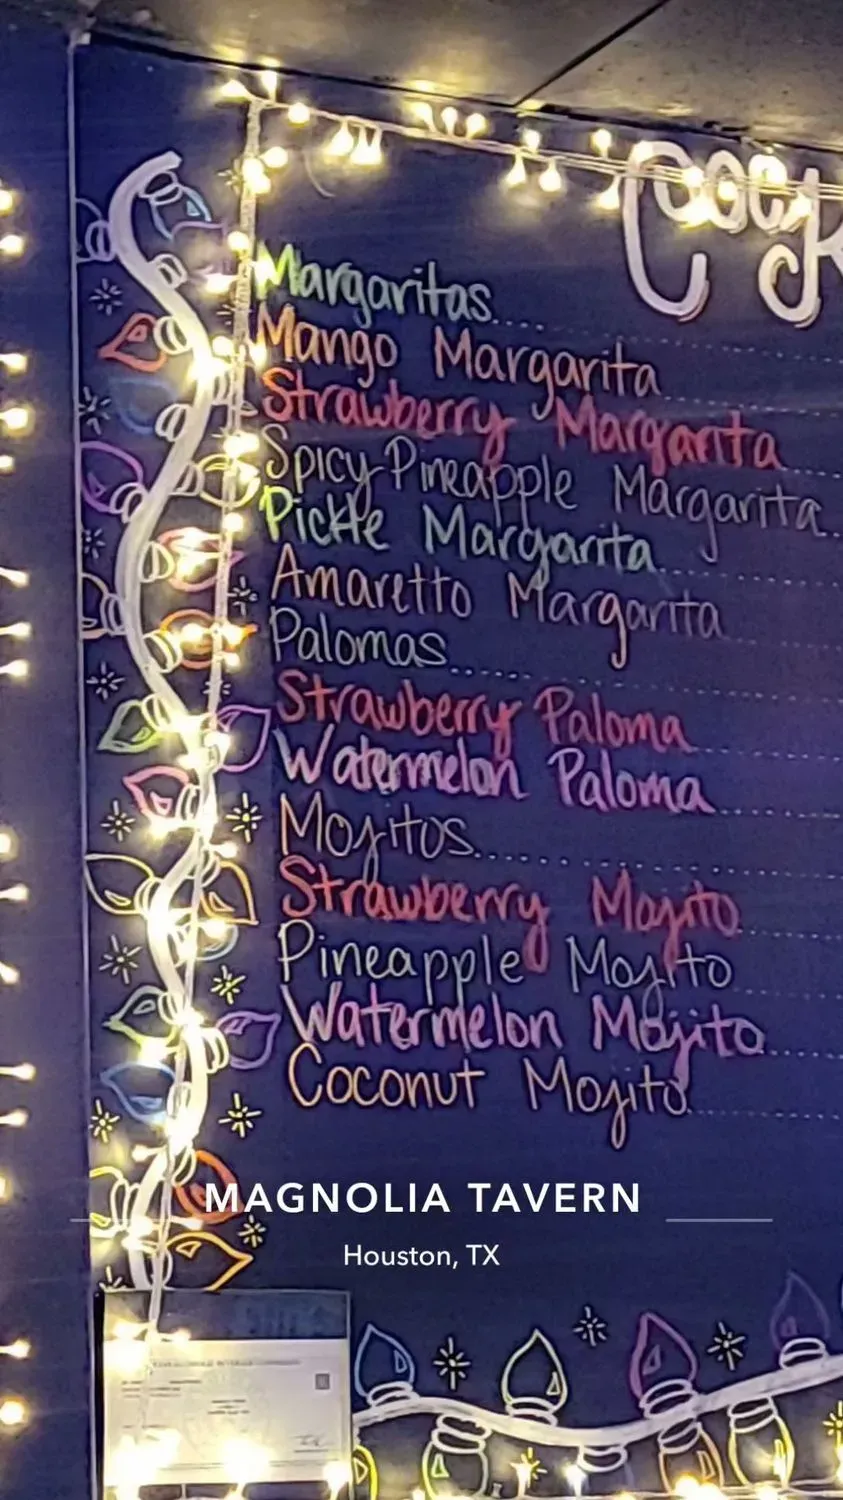 Cock
Margaritas
Mango Margarita
Strawberry Margarita
Spicy Pineapple Margarita
Pickle Margarita
Amaretto Margarita
Palomas
Strawberry Paloma
Watermelon Paloma
Mojitos
Strawberry Mojito
Pineapple Mojito
Watermelon Mojito
Coconut Mojito
MAGNOLIA TAVERN
Houston, TX